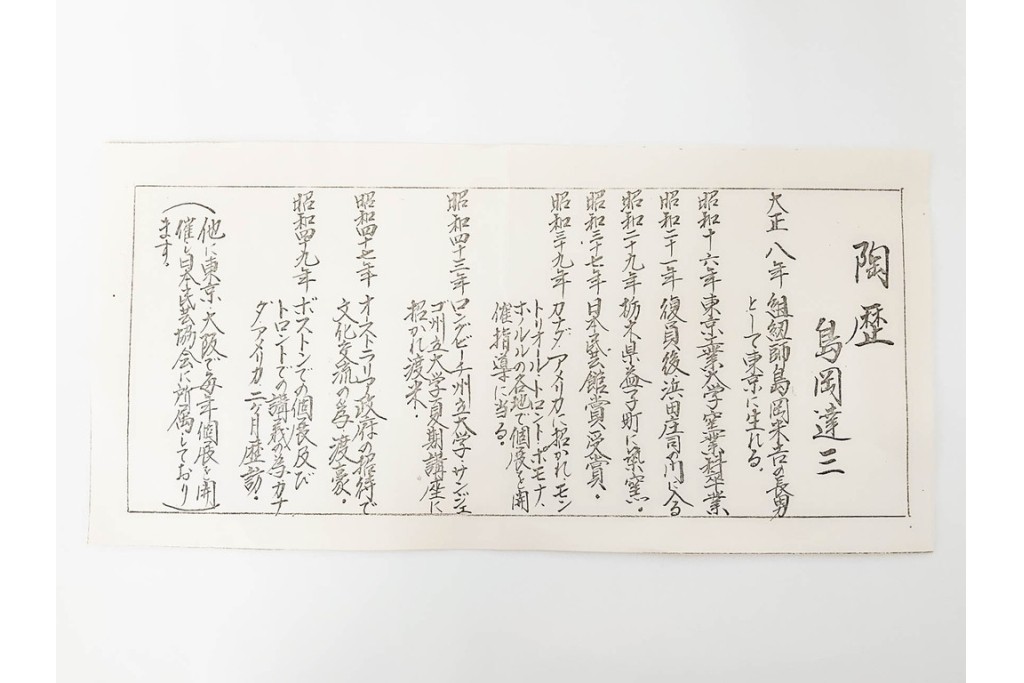 陶歴
島岡達三
大正八年 組紐師島岡米吉の長男
として東京に生れる。
昭和十六年 東京工業大学窯業科卒業
昭和二十一年 復員後浜田庄司の門に入る
昭和二十九年 栃木県益子町に築窯。
昭和三十七年 日本民芸館賞受賞。
昭和三十九年 カナダ、アメリカに招かれ、モン
トリオール・トロント・ポモナ、
ホルルの各地で個展を開
催指導に当る。
昭和四十三年 ロングビーチ州立大学サンジェ
ゴ州立大学夏期講座に
招かれ渡米。
昭和四十七年 オストラリア政府の招待で
文化交流の為、渡豪。
昭和四十九年 ボストンでの個展及び
トロントでの講義の為、カナ
ダ、アメリカ、二ヶ月歴訪。
(他に東京、大阪で毎年個展を開
催し日本民芸協会に所属しており
ます。)